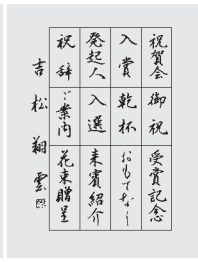 祝賀会
御祝
受賞記念
入賞
乾杯
おもてなし
発起人
入選
来賓紹介
祝辞
ご案内
花束贈呈
吉松翔雲